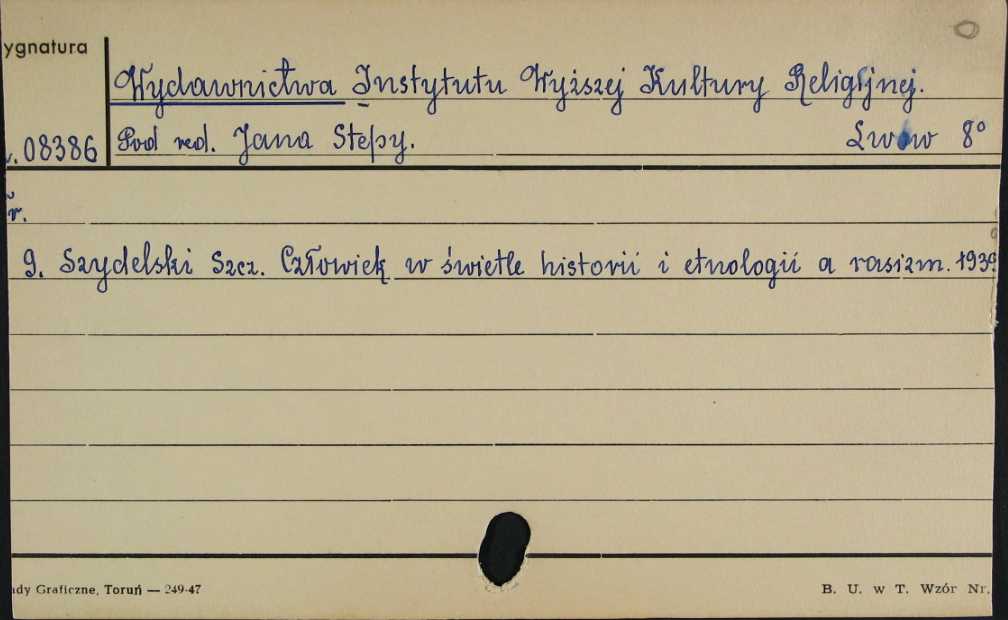 ygnatura
Wydawnictwa Instytutu Wyższej Kultury Religijnej.
08386 Pod red. Jana Stepy. Lwów 8°
9. Szydelski Szcz. Człowiek w świetle historii i etnologii a rasizm. 1939
dy Graficzne, Toruń — 249-47 B. U. w T. Wzór Nr.